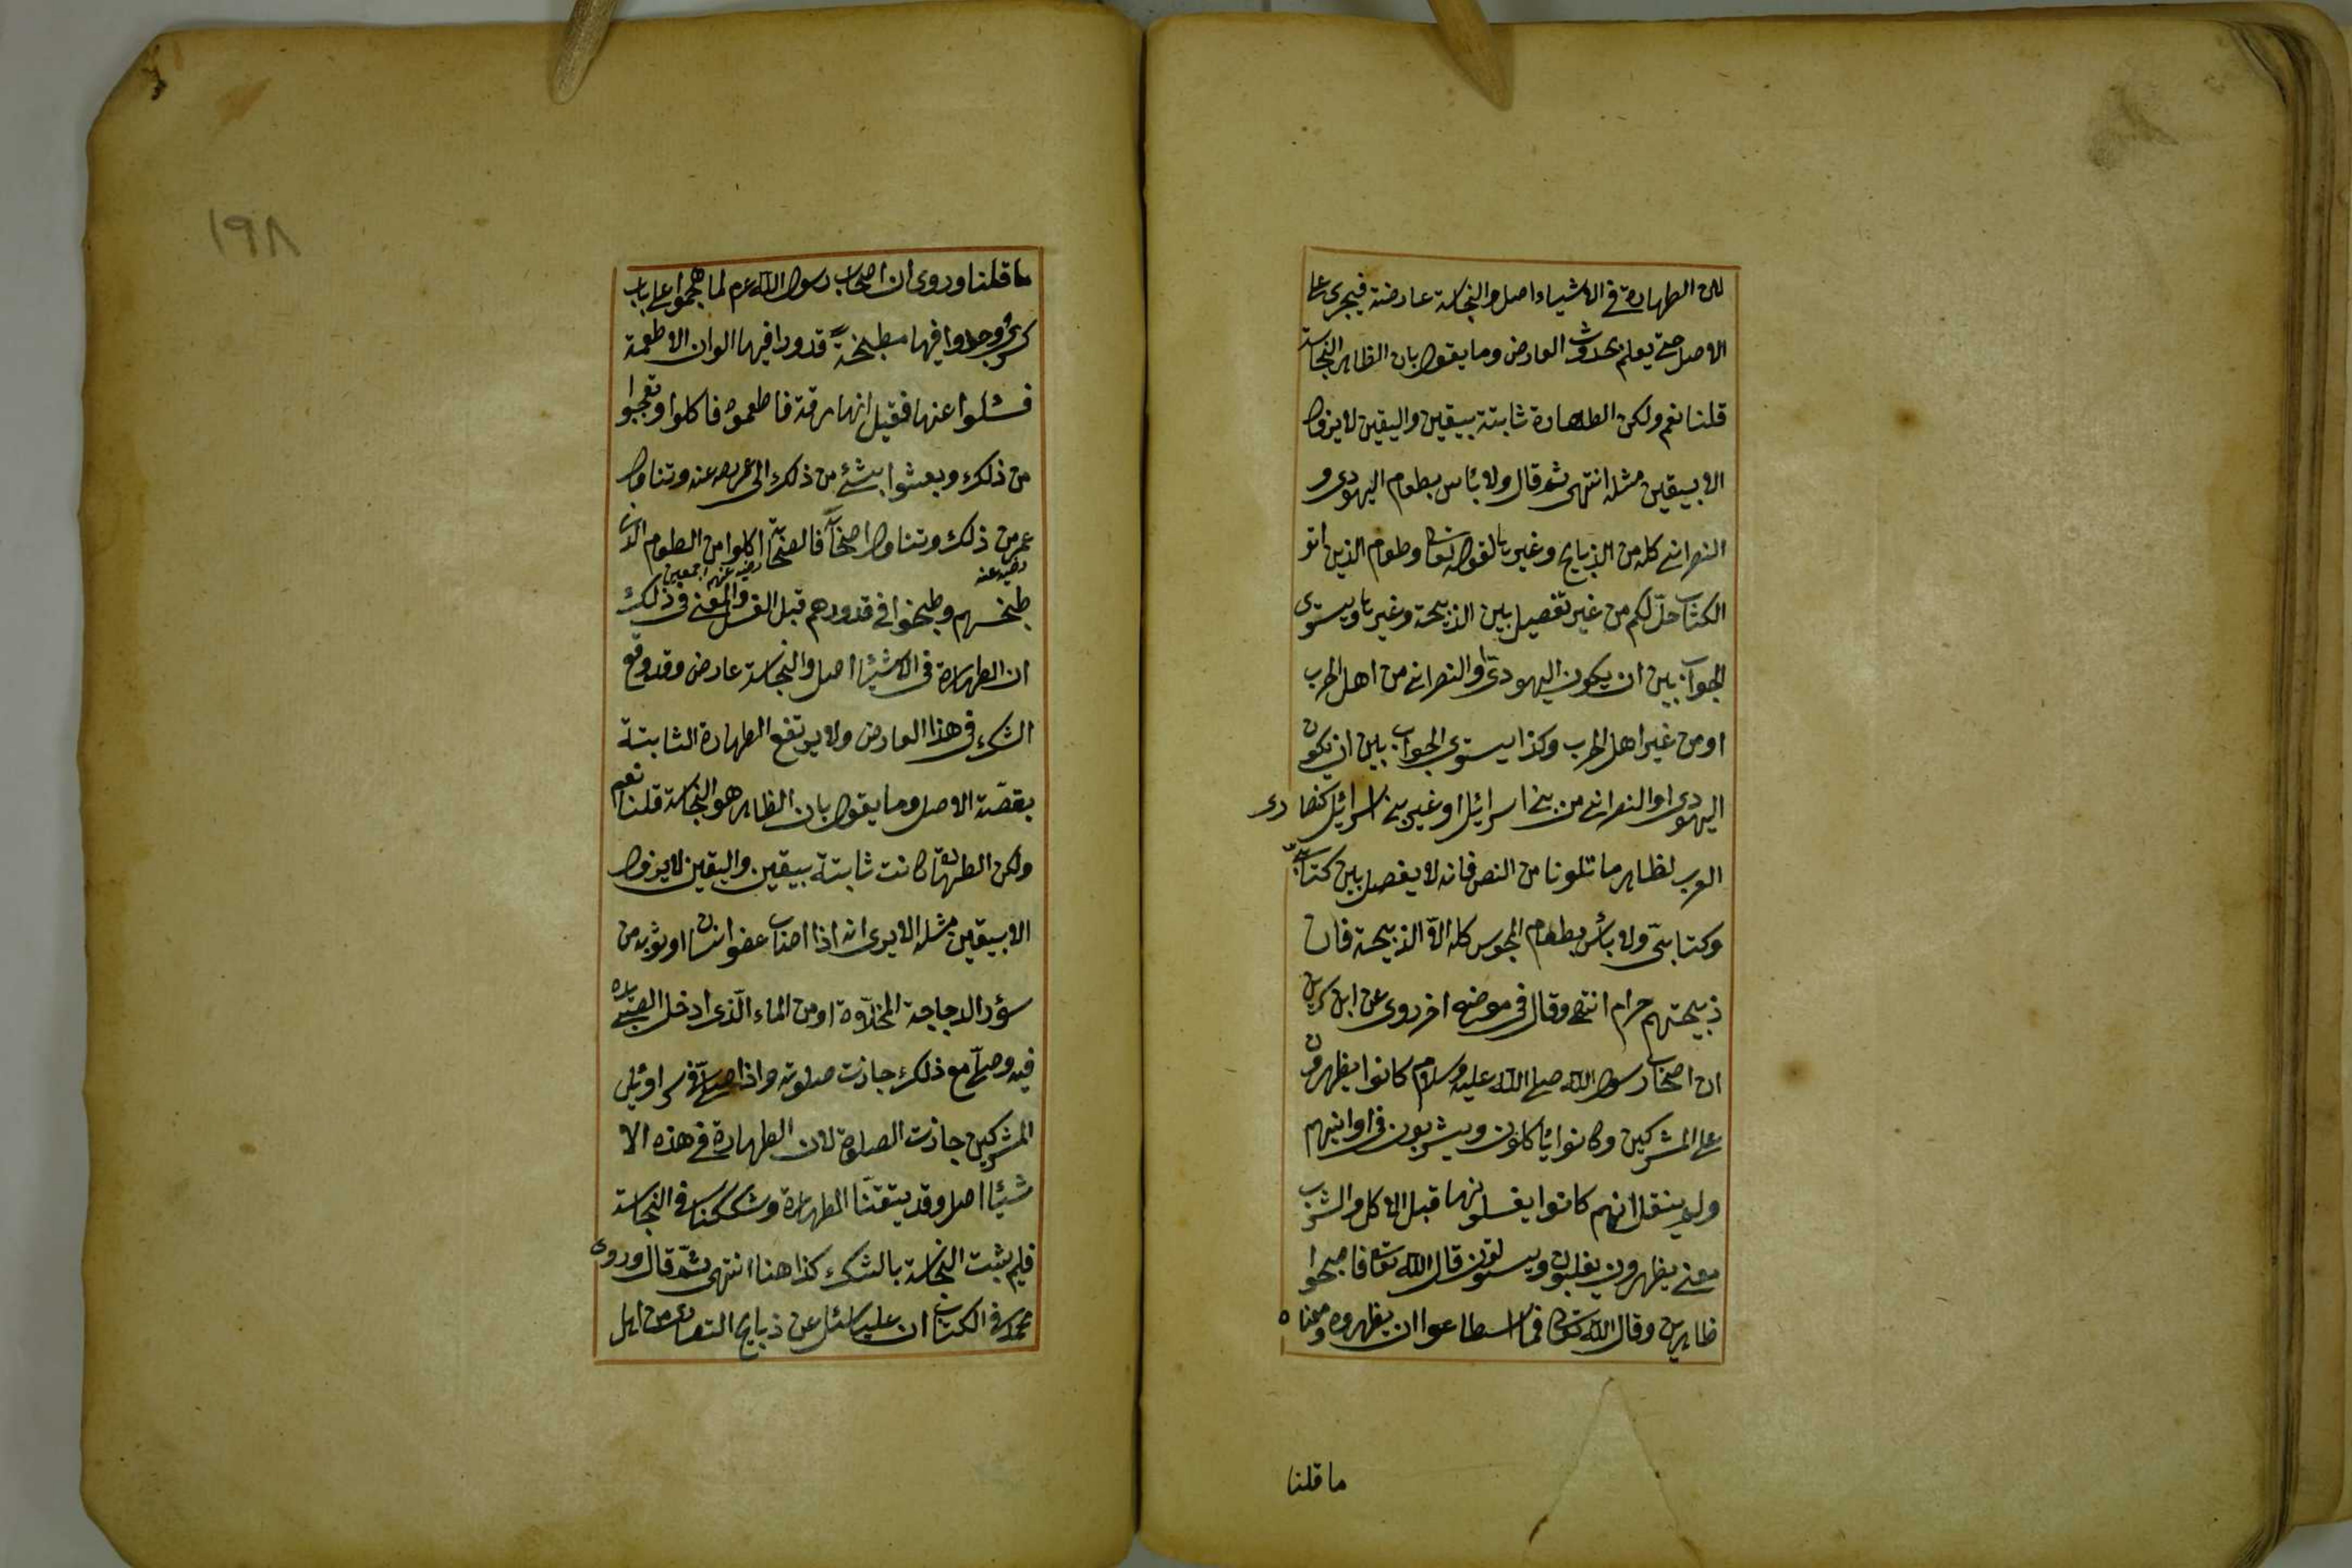 لان الطهارة في الاشياء اصل والنجاسة عارضة فيجرى على
الاصل حتى يعلم بحدوث العارض وما يقول بان الظاهر النجاسة
قلنا نعم ولكن الطهارة ثابتة بيقين واليقين لا يزول
الا بيقين مثله انتهى ثم قال ولا بأس بطعام اليهودى و
النصرانى كله من الذبايح وغيرها لقوله تعالى وطعام الذين اتو
الكتاب حلّ لكم من غير تفصيل بين الذبيحة وغيرها ويستوى
الجواب بين ان يكون اليهودى او النصرانى من اهل الحرب
او من غير اهل الحرب وكذا يستوى الجواب بين ان يكون
اليهودى او النصرانى من بنى اسرائيل او غير بنى اسرائيل كنصارى
العرب لظاهر ما تلونا من النص فانه لا يفصل بين كتابى
وكتابىّ ولا بأس بطعام المجوس كله الاّ الذبيحة فان
ذبيحتهم حرام انتهى وقال فى موضع اخر روى عن ابن سيرين
ان اصحاب رسول الله صلى الله عليه وسلام كانوا يظهرون
على المشركين وكانوا يأكلون ويشربون فى اوانيهم
ولم ينقل انهم كانوا يغسلونها قبل الاكل والشرب
معنى يظهرون يغلبون ويستولون قال الله تعالى فاصبحوا
ظاهرين وقال الله تعالى فما اسطاعوا ان يظهروه ومعناه
ما قلنا
١٩٨
ما قلنا وروى ان اصحاب رسول الله عم لما هجموا على باب
كسرى وجدوا فيها مطبخة قدورا فيها الوان الاطعمة
فسئلوا عنها فقيل انها مرقة فاطعموه فاكلوا وتعجبوا
من ذلك وبعثوا بشئ من ذلك الى عمر رضه عنه وتناول
عمر من ذلك وتناول اصحابه فالصحابة اكلوا من الطعام الذى
رضيه عنه رضيه عنهم اجمعين
طبخهم وطبخوا فى قدورهم قبل الغسل والمعنى فى ذلك
ان الطهارة فى الاشيئا اصل والنجاسة عارض وقد وقع
الشك فى هذا العارض ولا يرتفع الطهارة الثابتة
بقضّة الاصل وما يقول بان الظاهر هو النجاسة قلنا نعم
ولكن الطهارة كانت ثابتة بيقين واليقين لا يزول
الا بيقين مثله الا يرى انه اذا اصاب عضو انسان او ثوبه من
سؤر الدجاجة المخلاّوة او من الماء الّذى ادخل الصبى يده
فيه وصلّى مع ذلك جازت صلوته واذا صلّى فى سراويل
المشركين جازت الصلوة لان الطهارة فى هذه الا
شيئا اصل وقد يتقنّا الطهارة وشككنا فى النجاسة
فلم يثبت النجاسة بالشك كذا هنا انتهى ثمّ قال وروى
محمد فى الكتاب ان عليا سئل عن ذبايح النصارى من اهل